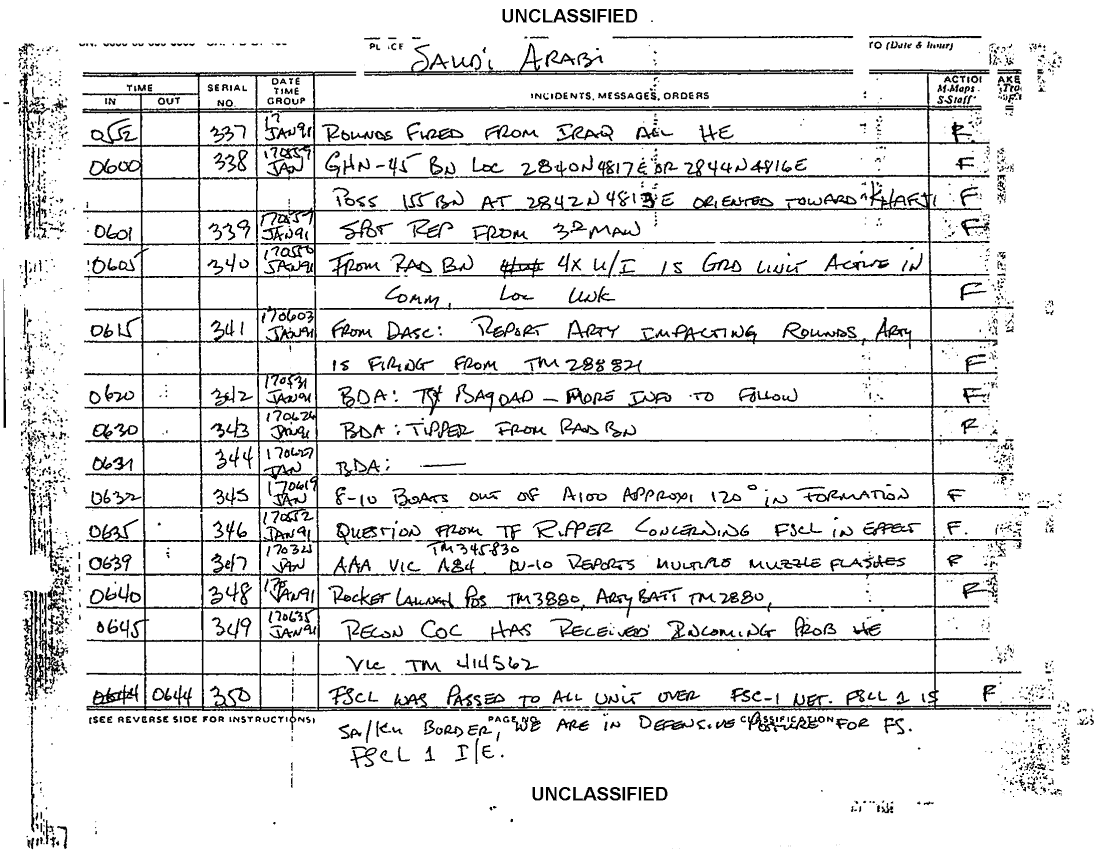 UNCLASSIFIED
PLACE SAUDI ARABI TO (Date & hour)
TIME SERIAL NO. DATE TIME GROUP INCIDENTS, MESSAGES, ORDERS
IN OUT
0552 337 17 JAN91 ROUNDS FIRED FROM IRAQ ALL HE F
0600 338 170559 JAN GHN-45 BN LOC 2840N4817E OR 2844N4816E F
POSS 155 BN AT 2842N 4813E ORIENTED TOWARD KHAFJI F
0601 339 170557 JAN91 SPOT REP FROM 3D MAW F
0605 340 170550 JAN91 FROM RAD BN 4X U/I IS GRD UNIT ACTIVE IN
COMM, LOC UNK F
0615 341 170603 JAN91 FROM DASC: REPORT ARTY IMPACTING ROUNDS, ARTY
IS FIRING FROM TM 288821 F
0620 342 170531 JAN91 BDA: BAGDAD – MORE INFO TO FOLLOW F
0630 343 170626 JAN91 BDA: TIPPER FROM RAD BN F
0631 344 170627 JAN BDA: —
0632 345 170619 JAN 8-10 BOATS OUT OF A100 APPROXI 120° IN FORMATION F
0635 346 170552 JAN91 QUESTION FROM TF RIPPER CONCERNING FSCL IN EFFECT F.
TM345830
0639 347 JAN AAA VIC A84 OV-10 REPORTS MULTIPLE MUZZLE FLASHES F
0640 348 JAN91 ROCKET LAUNCH POS TM3880, ARTY BATT TM2880, F
0645 349 170635 JAN91 RECON COC HAS RECEIVED INCOMING PROB HE
VIC TM 414562
0644 0644 350 FSCL WAS PASSED TO ALL UNIT OVER FSC-1 NET. FSCL 1 IS F
(SEE REVERSE SIDE FOR INSTRUCTIONS) PAGE NO. CLASSIFICATION
SA/KU BORDER, WE ARE IN DEFENSIVE POSTURE FOR FS.
FSCL 1 I/E.
UNCLASSIFIED